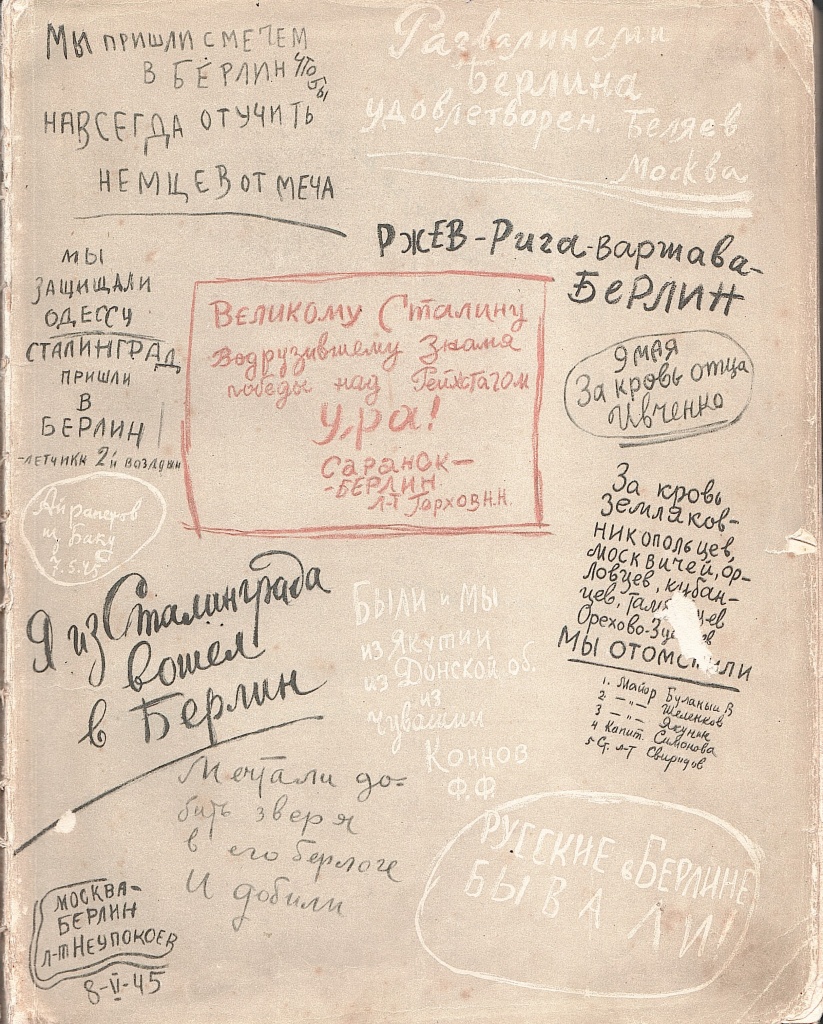 МЫ ПРИШЛИ С МЕЧЕМ
В БЕРЛИН ЧТОБЫ
НАВСЕГДА ОТУЧИТЬ
НЕМЦЕВ ОТ МЕЧА
Развалинами
Берлина
удовлетворен. Беляев
Москва
РЖЕВ-Рига-Варшава-
БЕРЛИН
МЫ
ЗАЩИЩАЛИ
ОДЕССУ
СТАЛИНГРАД
ПРИШЛИ
В
БЕРЛИН
-ЛЕТЧИКИ 2й
ВЕЛИКОМУ Сталину
Водрузившему Знамя
победы над Рейхстагом
Ура!
САРАНСК-
-БЕРЛИН
Л-Т ГОРХОВ Н.Н.
9 МАЯ
За кровь отца
Ивченко
За кровь
Земляков-
НИКОПОЛЬЦЕВ,
МОСКВИЧЕЙ, ОР-
ЛОВЦЕВ, КУБАН-
ЦЕВ,
Орехово-
МЫ
1. Майор Буланый В
2 -„- Шеленков
3 -„- Якунин
4 Капит. Симонова
5 Ст. л-т Свиридов
Айрапетов
из Баку
7.5.45
Я из Сталинграда
вошел
в Берлин
БЫЛИ и МЫ
из Якутии
из Донской об.
из
Чувашии
Коннов
Ф.Ф.
Мечтали до-
бить зверя
в его берлоге
И добили
РУССКИЕ в БЕРЛИНЕ
БЫВАЛИ!
МОСКВА-
БЕРЛИН
Л-Т НЕУПОКОЕВ
8-V-45